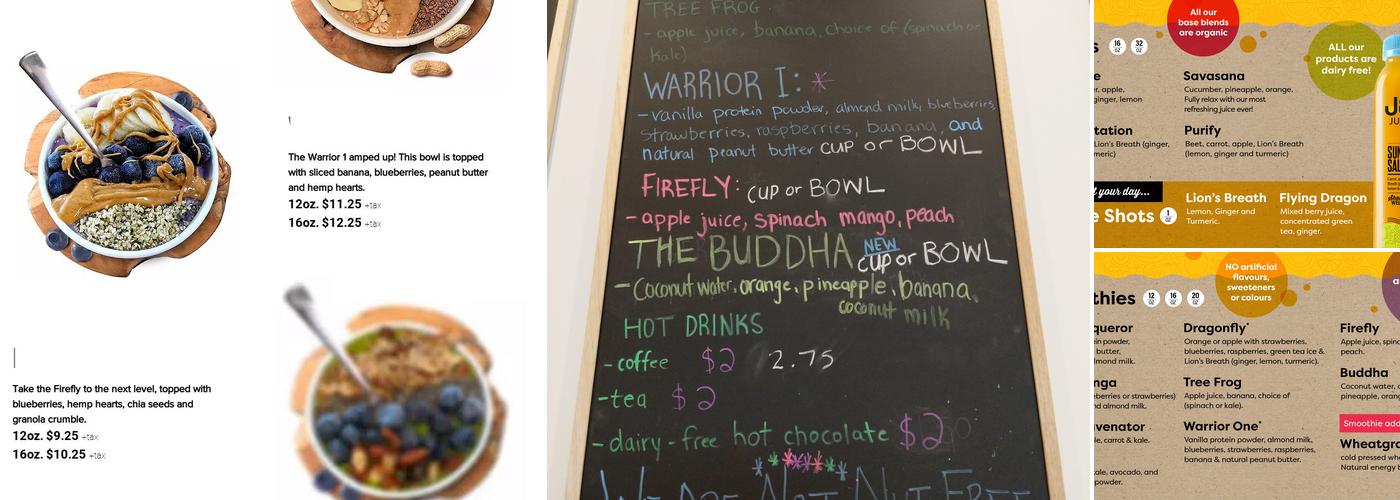 The Warrior 1 amped up! This bowl is topped
with sliced banana, blueberries, peanut butter
and hemp hearts.
12oz. $11.25 +tax
16oz. $12.25 +tax
Take the Firefly to the next level, topped with
blueberries, hemp hearts, chia seeds and
granola crumble.
12oz. $9.25 +tax
16oz. $10.25 +tax
TREE FROG
- apple juice, banana, choice of (spinach or
kale)
WARRIOR I: *
- vanilla protein powder, almond milk, blueberries,
strawberries, raspberries, banana, and
natural peanut butter CUP or BOWL
FIREFLY: CUP or BOWL
- apple juice, spinach mango, peach
THE BUDDHA NEW CUP or BOWL
- Coconut water, orange, pineapple, banana,
coconut milk
HOT DRINKS
- coffee $2 2.75
- tea $2
- dairy-free hot chocolate $2
WE ARE NOT NUT FREE
All our
base blends
are organic
16 OZ 32 OZ
ALL our
products are
dairy free!
Savasana
Cucumber, pineapple, orange.
Fully relax with our most
refreshing juice ever!
er, apple,
ginger, lemon
tation
Lion's Breath (ginger,
meric)
Purify
Beet, carrot, apple, Lion's Breath
(lemon, ginger and turmeric)
your day...
e Shots 1 OZ
Lion's Breath
Lemon, Ginger and
Turmeric.
Flying Dragon
Mixed berry juice,
concentrated green
tea, ginger.
NO artificial
flavours,
sweeteners
or colours
thies 12 OZ 16 OZ 20 OZ
queror
ein powder,
butter,
lmond milk.
nga
eberries or strawberries)
nd almond milk.
uvenator
le, carrot & kale.
ale, avocado, and
powder.
Dragonfly*
Orange or apple with strawberries,
blueberries, raspberries, green tea ice &
Lion's Breath (ginger, lemon, turmeric).
Tree Frog
Apple juice, banana, choice of
(spinach or kale).
Warrior One*
Vanilla protein powder, almond milk,
blueberries, strawberries, raspberries,
banana & natural peanut butter.
Firefly
Apple juice, spina
peach.
Buddha
Coconut water, c
pineapple, oran
Smoothie add
Wheatgra
cold pressed whe
Natural energy b